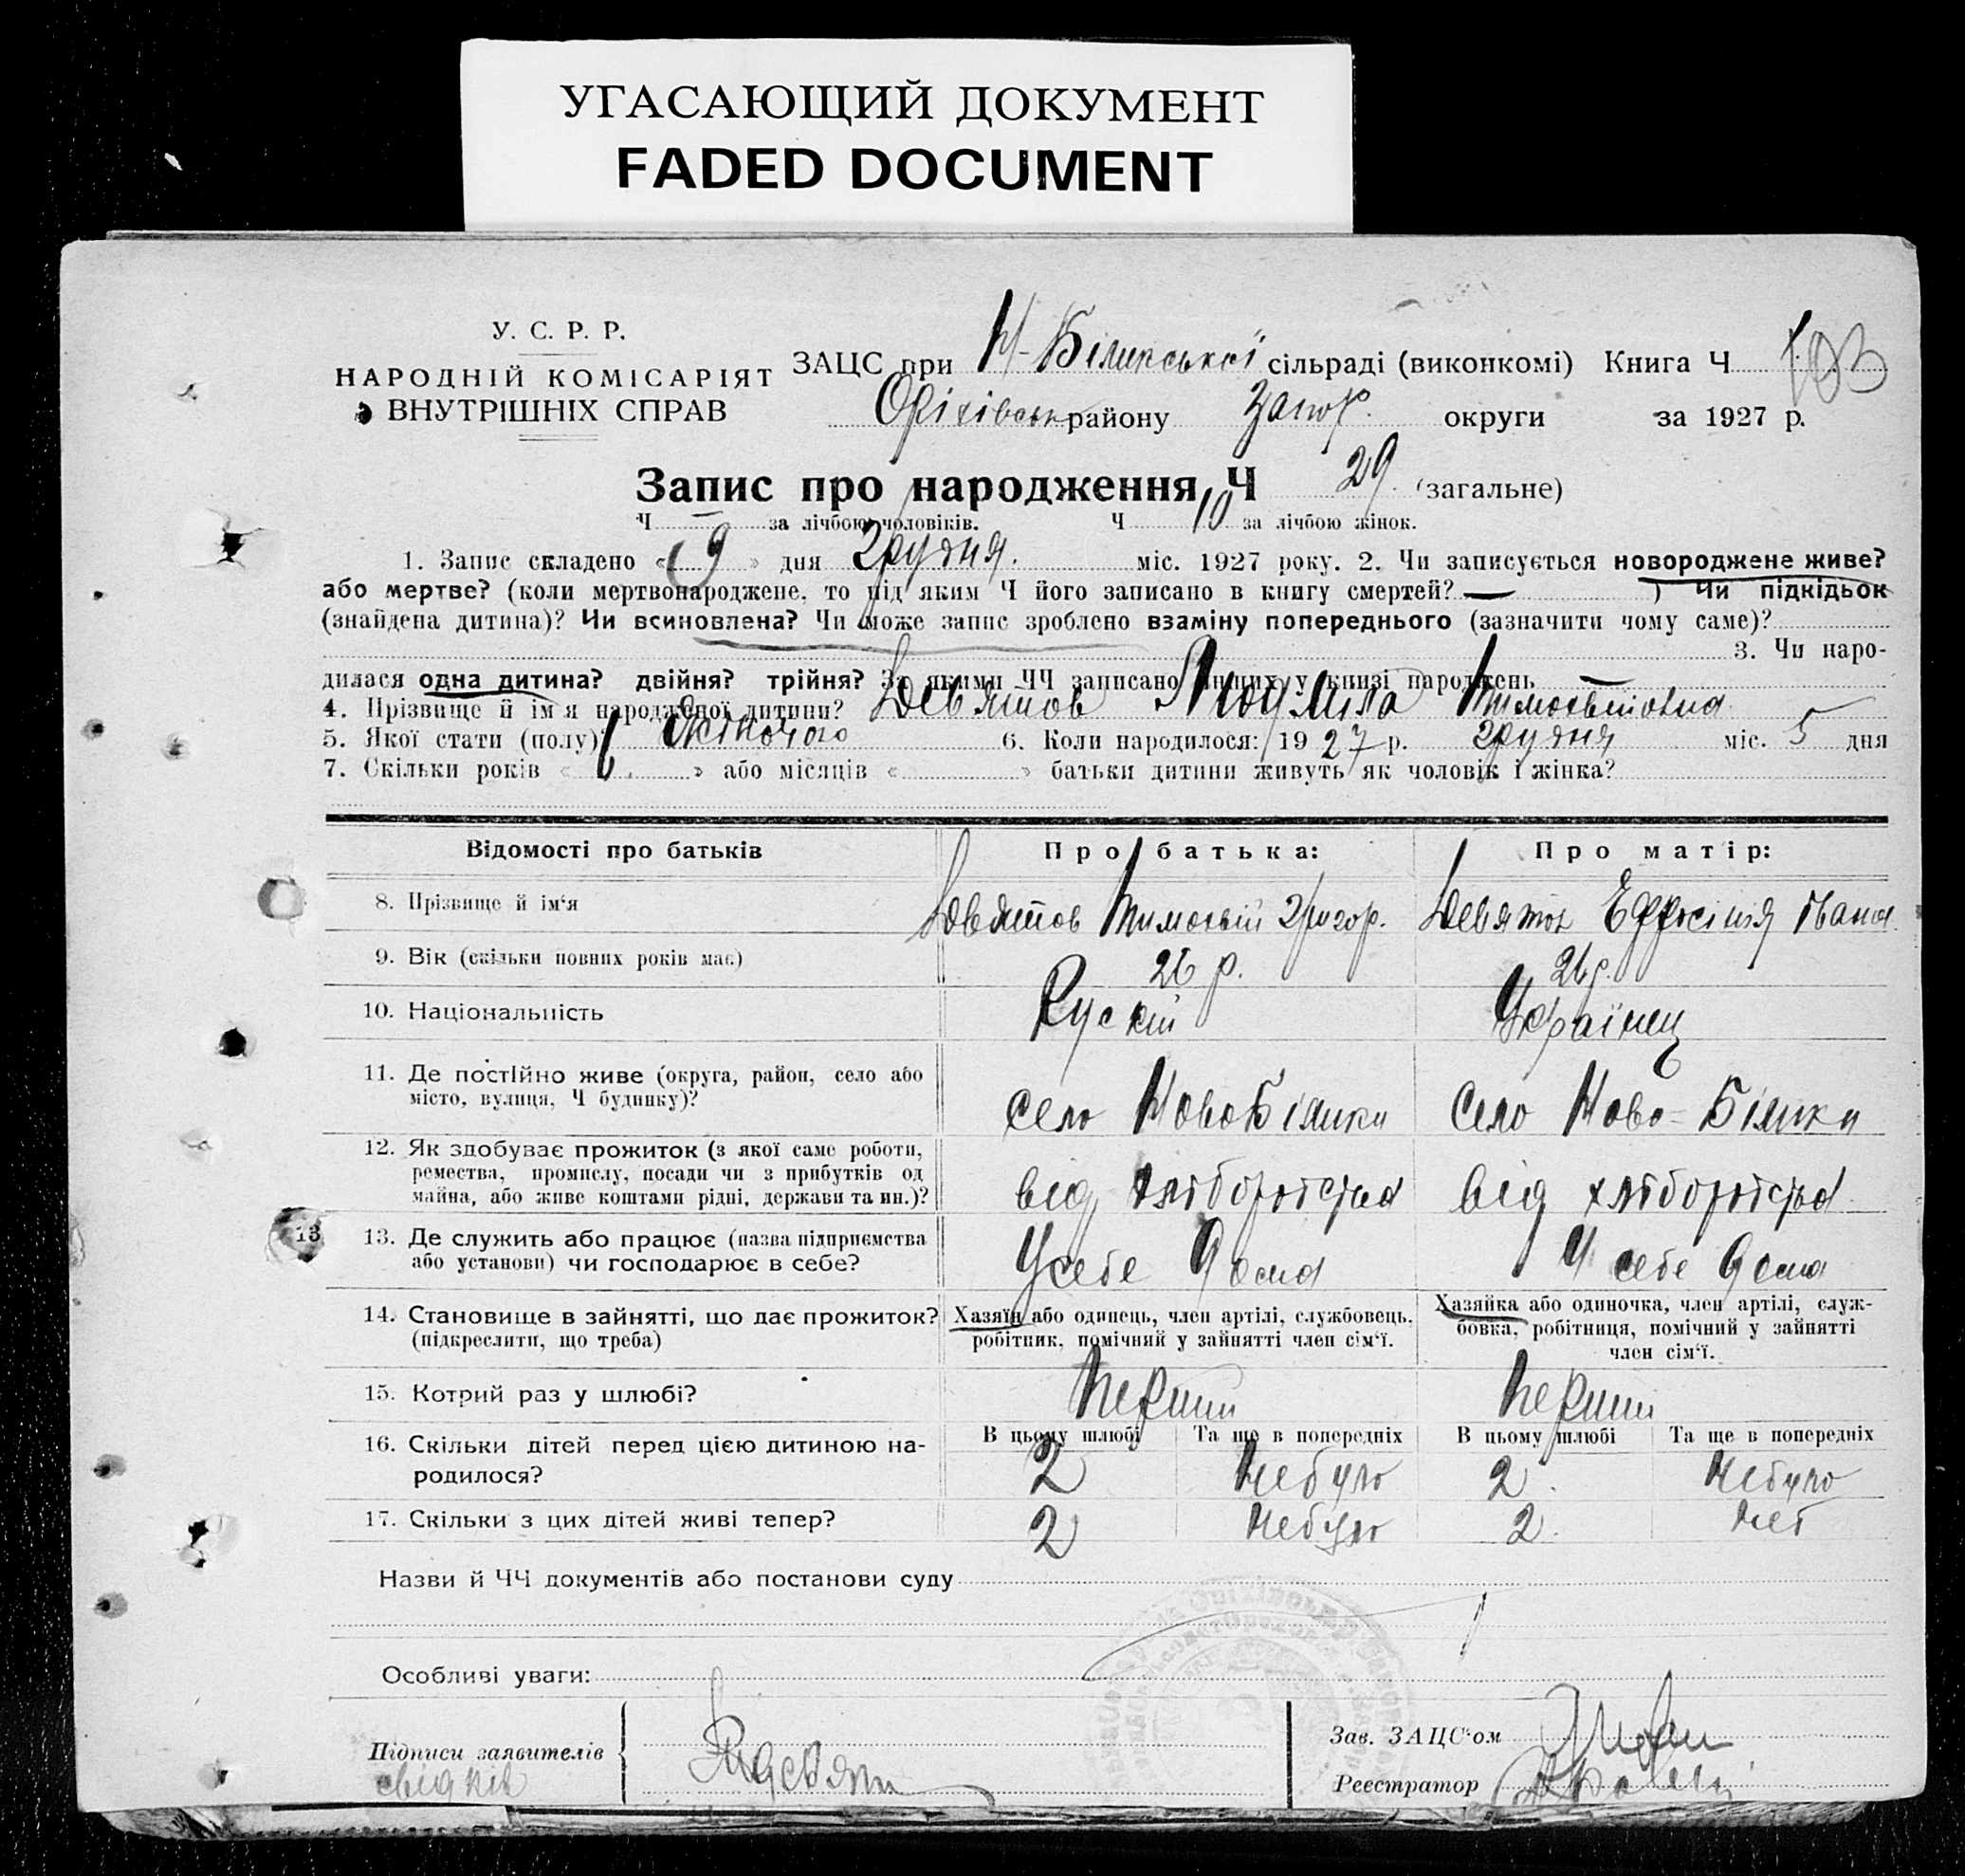 УГАСАЮЩИЙ ДОКУМЕНТ
FADED DOCUMENT
У. С. Р. Р.
НАРОДНІЙ КОМІСАРІЯТ
ВНУТРІШНІХ СПРАВ
ЗАЦС при Н-Білинської сільраді (виконкомі) Книга Ч 103
Оріхівськ району Запор. округи за 1927 р.
Запис про народження Ч 29 (загальне)
Ч — за лічбою чоловіків. Ч 10 за лічбою жінок.
1. Запис складено « 9 » дня Грудня. міс. 1927 року. 2. Чи записується новороджене живе?
або мертве? (коли мертвонароджене, то під яким Ч його записано в книгу смертей? — ) Чи підкідьок
(знайдена дитина)? Чи всиновлена? Чи може запис зроблено взаміну попереднього (зазначити чому саме)?
3. Чи наро-
дилася одна дитина? двійня? трійня? За якими ЧЧ записано инших у книзі народжень —
4. Прізвище й ім'я народженої дитини? Девятов Людмила Тимофеїовна
5. Якої стати (полу) Жіночого 6. Коли народилося: 1927 р. Грудня міс. 5 дня
7. Скільки років « 6. » або місяців « » батьки дитини живуть як чоловік і жінка?
Відомості про батьків Про батька: Про матір:
8. Прізвище й ім'я Девятов Тимофій Григор. Девятов Ефросінія Івано.
9. Вік (скільки повних років має) 26 р. 26 р.
10. Національність Рускій Українец
11. Де постійно живе (округа, район, село або
місто, вулиця, Ч будинку)? село НовоБілики Село Ново-Білики
12. Як здобуває прожиток (з якої саме роботи,
ремества, промислу, посади чи з прибутків од
майна, або живе коштами рідні, держави та ин.)? від хліборобства від хліборобства
13
13. Де служить або працює (назва підприємства
або установи) чи господарює в себе? У себе дома У себе дома
14. Становище в зайнятті, що дає прожиток?
(підкреслити, що треба)
Хазяїн або одинець, член артілі, службовець,
робітник, помічний у зайнятті член сім'ї.
Хазяйка або одиночка, член артілі, служ-
бовка, робітниця, помічний у зайнятті
член сім'ї.
15. Котрий раз у шлюбі? Перший Перший
В цьому шлюбі Та ще в попередніх В цьому шлюбі Та ще в попередніх
16. Скільки дітей перед цією дитиною на-
родилося? 2 Небуло 2. Небуло
17. Скільки з цих дітей живі тепер? 2 Небуло 2. Нет
Назви й ЧЧ документів або постанови суду
Особливі уваги:
Підписи заявителів
свідків
Зав. ЗАЦС'ом
Реєстратор